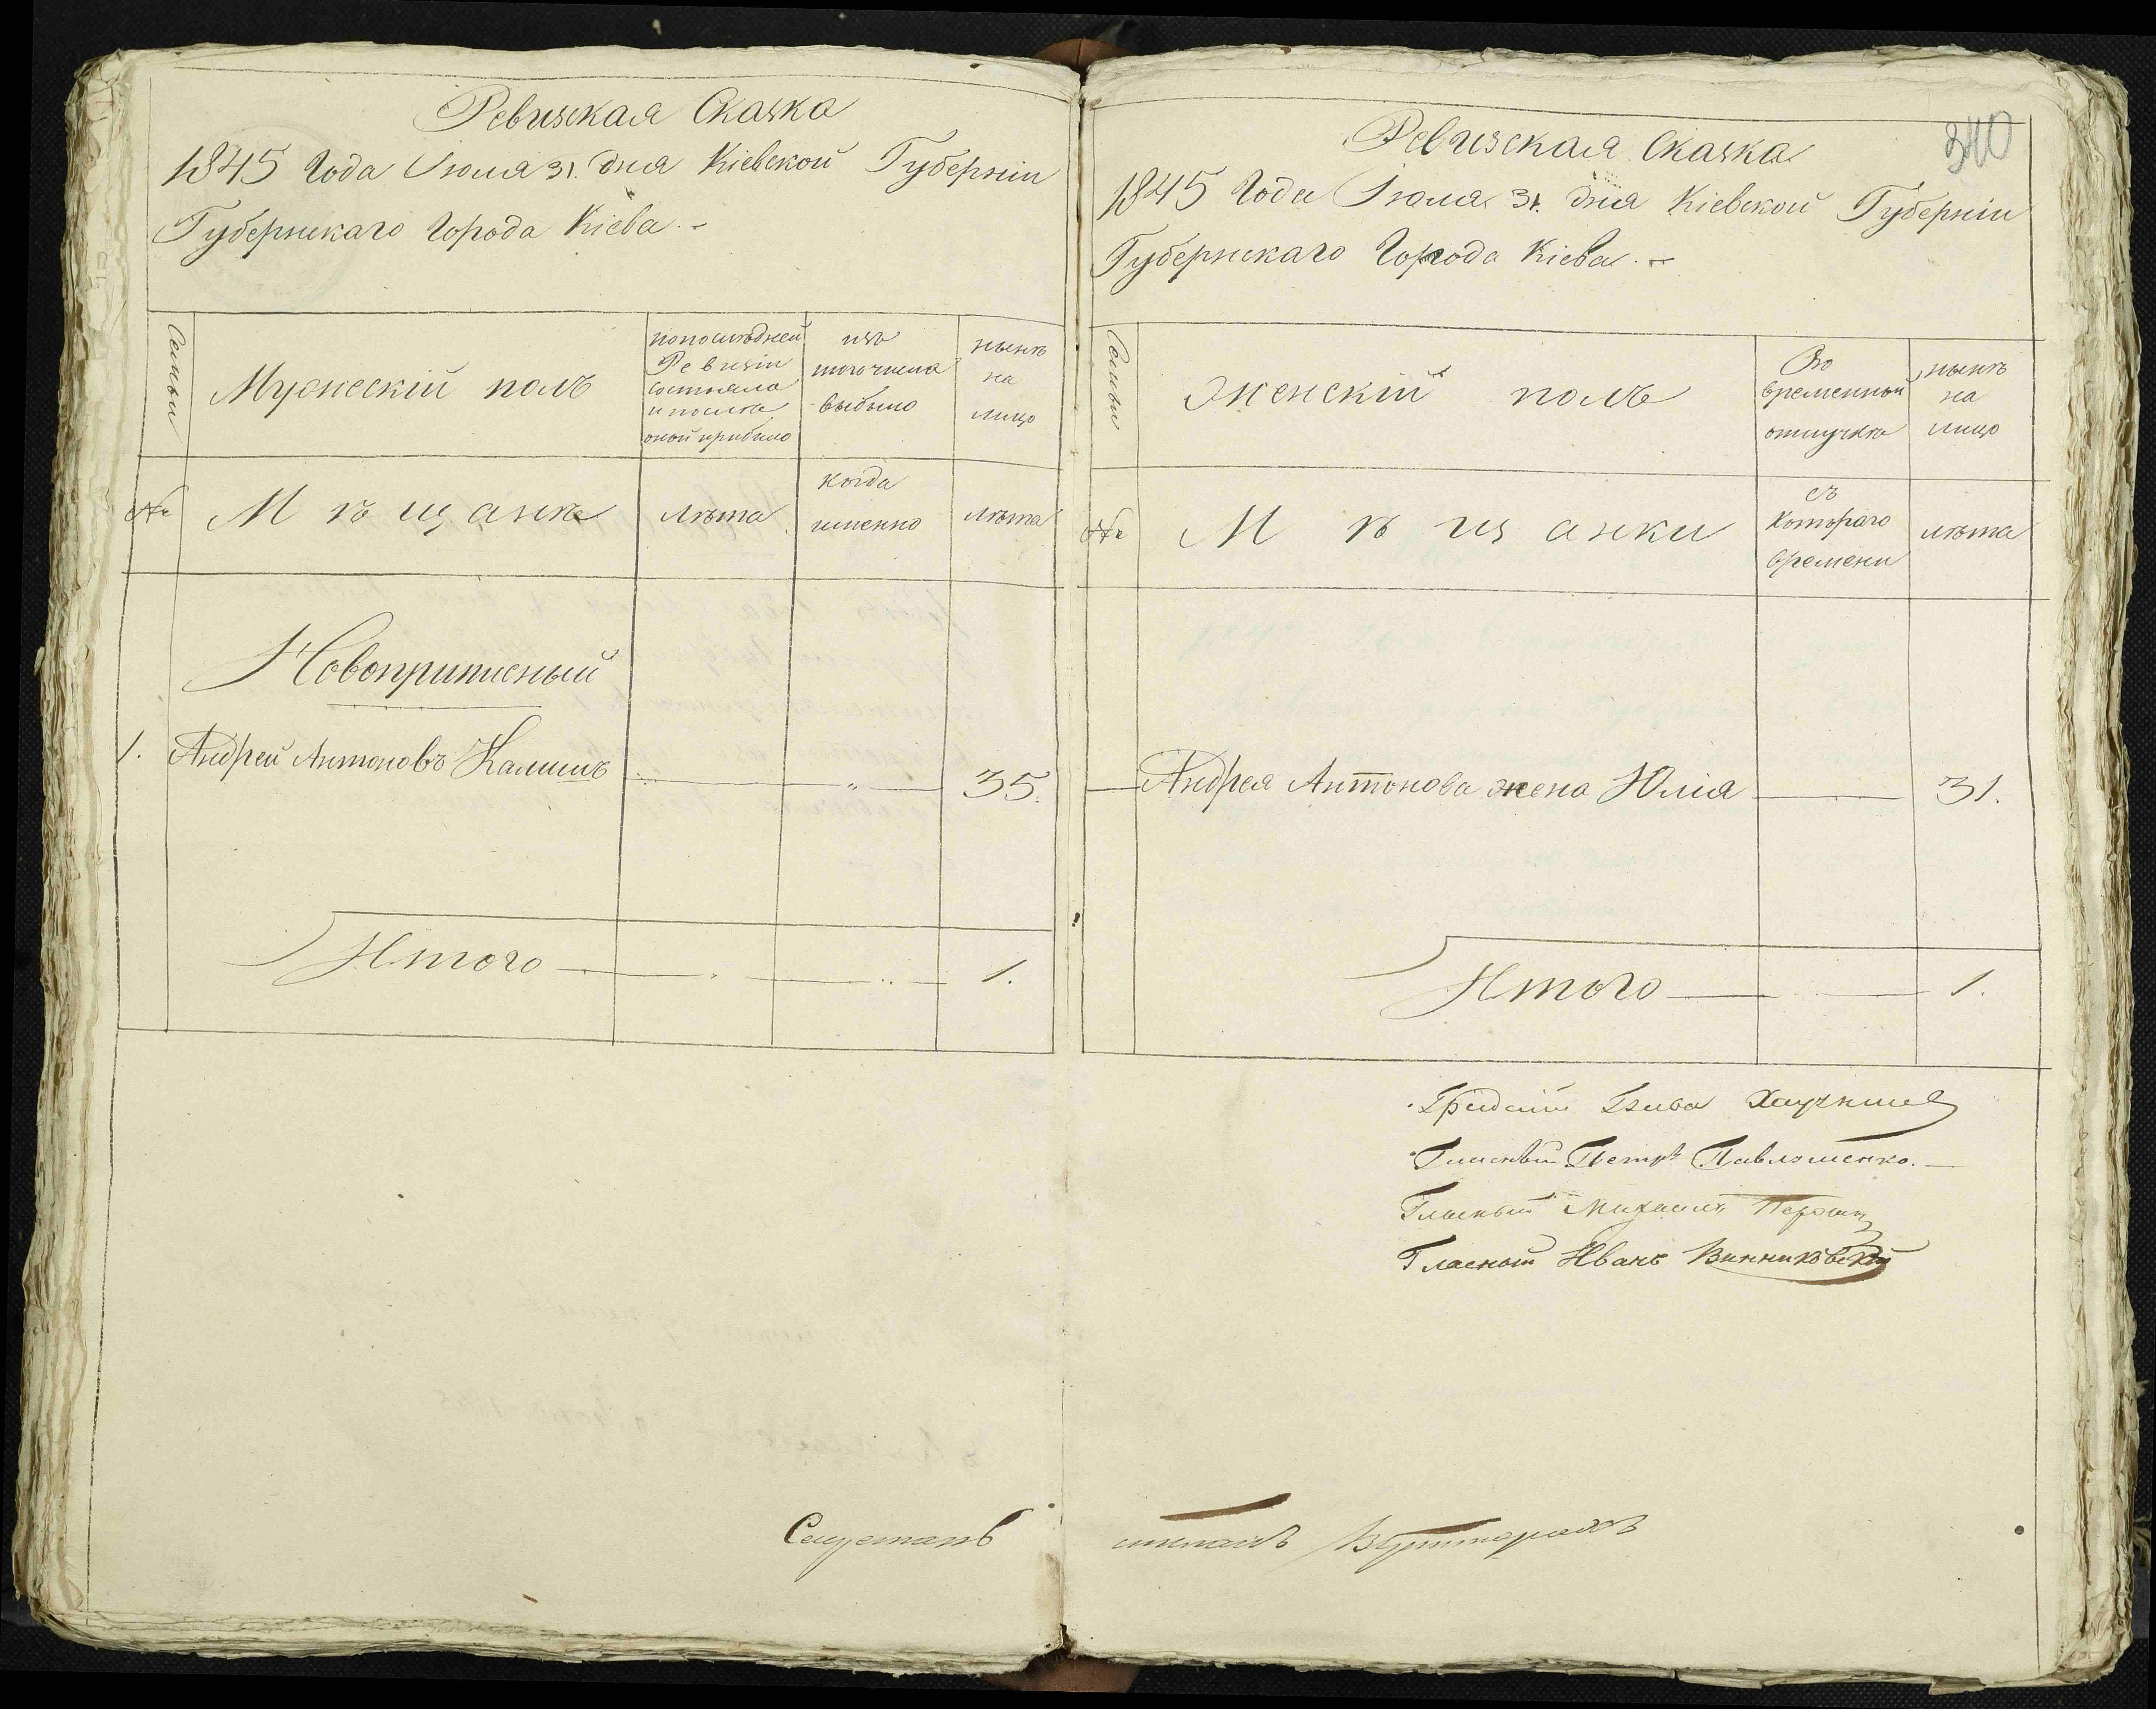 Ревизская Сказка
1845 Года Іюля 31. дня Кіевской Губерніи
Губернскаго Города Кіева. –
Семьи
Мужескій полъ
по последней
Ревизіи
состояло
и после
оной прибыло
изъ
того числа
выбыло
ныне
на
лицо
№
Мѣщане
лѣта
когда
именно
лѣта
Новоприписный
1. Андрей Антоновъ 35.
Итого 1.
340
Ревизская Сказка
1845 Года Іюля 31. дня Кіевской Губерніи
Губернскаго Города Кіева. –
Семьи
Женскій полъ
Во
временной
отлучкѣ
нынѣ
на
лицо
№
Мѣщанки
съ
котораго
времени
лѣта
Андрея Антонова жена Юлія 31.
Итого 1.
Гласный Петръ Павloшенко.
Гласный Михаилъ
Гласный Иванъ Винниковскій